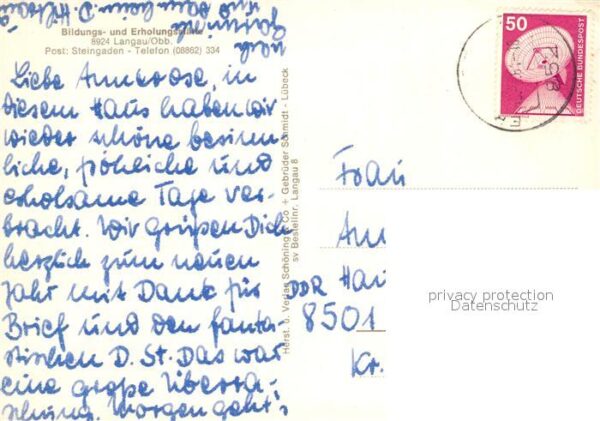 Bildungs- und Erholungsstätte
8924 Langau/Obb.
Post: Steingaden - Telefon (08862) 334
Liebe Annerose, in
diesem Haus haben wir
wieder schöne besinn-
liche, fröhliche und
erholsame Tage ver-
bracht. Wir grüßen Dich
herzlich zum neuen
Jahr mit Dank für
Brief und den fanta-
stischen D. St. Das war
eine große Überra-
schung. Morgen geht's
nach
Herst. u. Verlag Schöning & Co + Gebrüder Schmidt - Lübeck
sv Bestellnr. Langau 8
50
DEUTSCHE BUNDESPOST
Frau
Ann
DDR Hai
8501
Kr.
privacy protection
Datenschutz